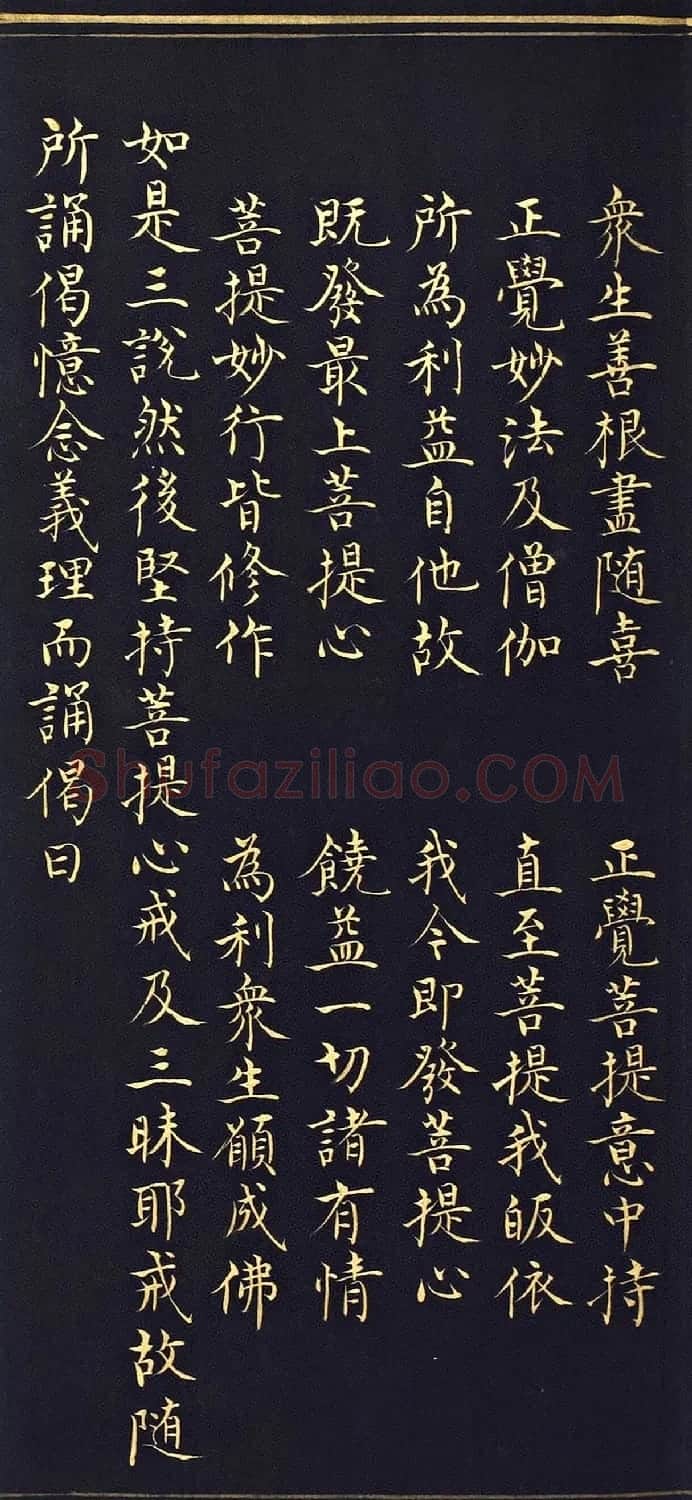 衆生善根盡随喜 正覺菩提意中持
正覺妙法及僧伽 直至菩提我皈依
所為利益自他故 我今即發菩提心
既發最上菩提心 饒益一切諸有情
菩提妙行皆修作 為利衆生願成佛
如是三說然後堅持菩提心戒及三昧耶戒故随
所誦偈憶念義理而誦偈曰
Shufaziliao.COM